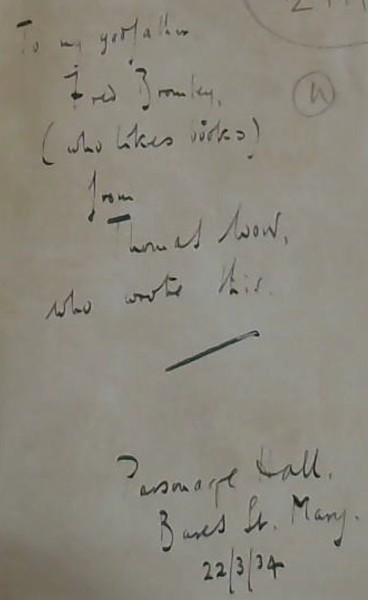 To my godfather
Fred Bromley,
(who likes books)
from
Thomas Wood,
who wrote this.
Parsonage Hall.
Bures St. Mary.
22/3/34